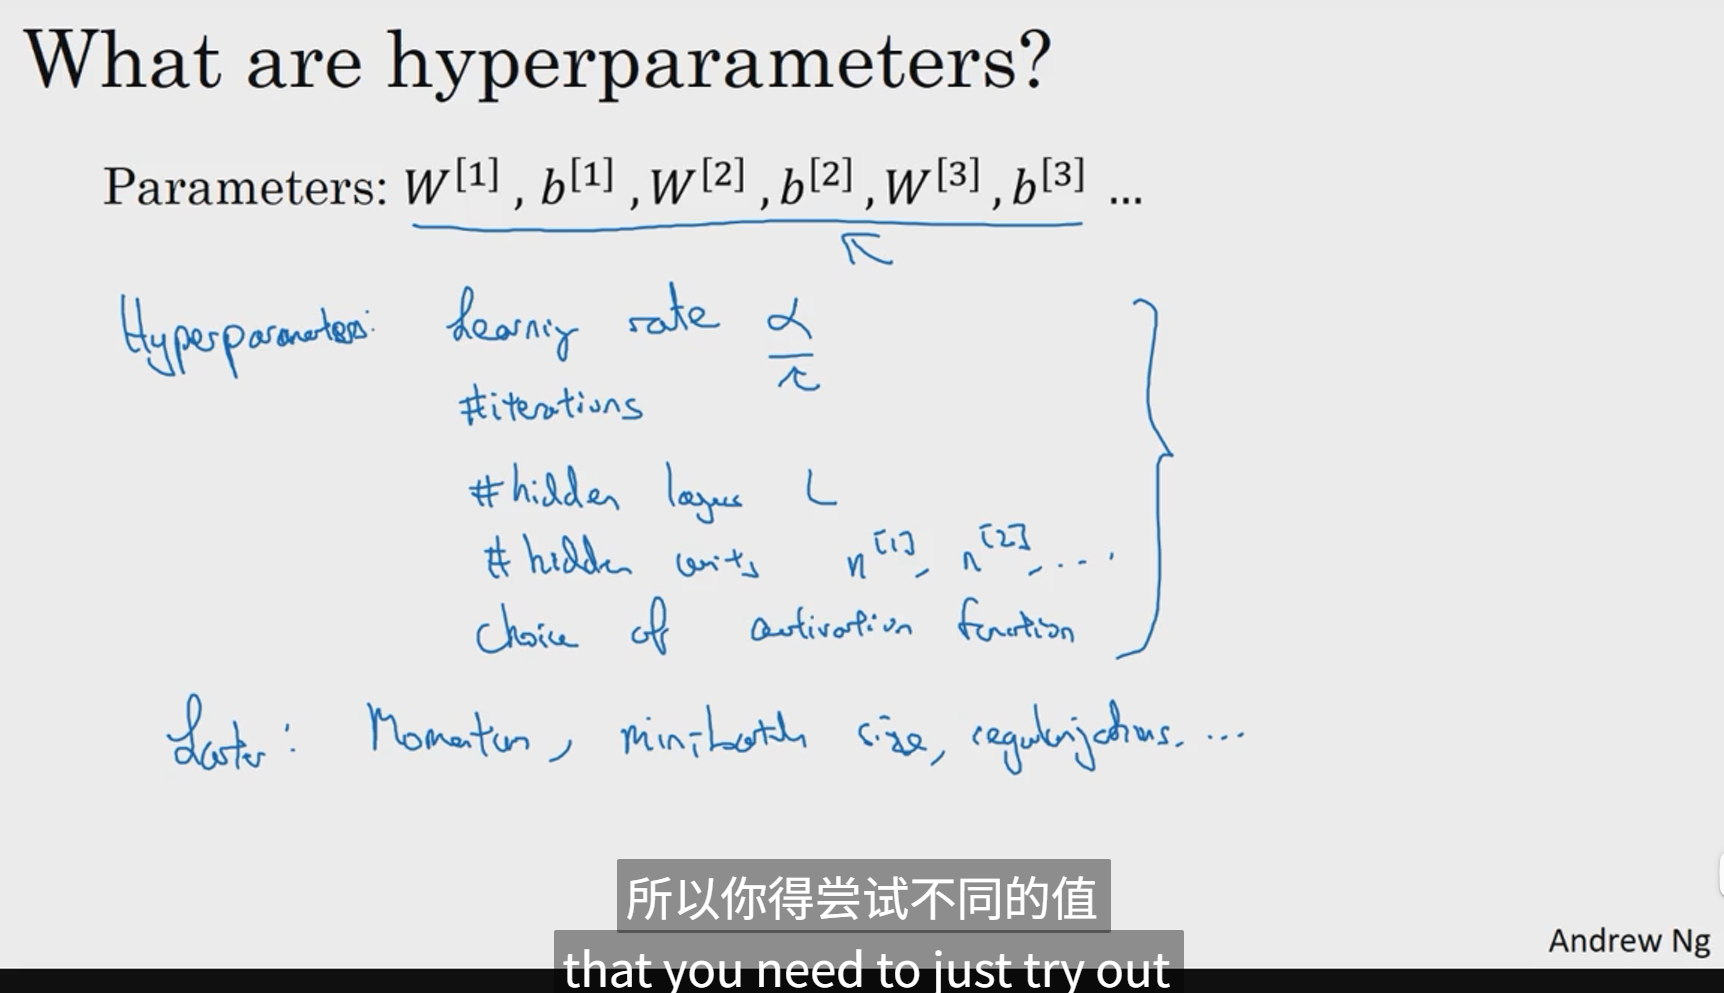 What are hyperparameters?
Parameters: W[1] , b[1] , W[2] , b[2] , W[3] , b[3] ...
Hyperparameters: Learning rate α
#iterations
# hidden layers L
# hidden units n[1], n[2], ....
choice of activation function
Later: Momentum, mini-batch size, regularizations, ...
所以你得尝试不同的值
that you need to just try out
Andrew Ng